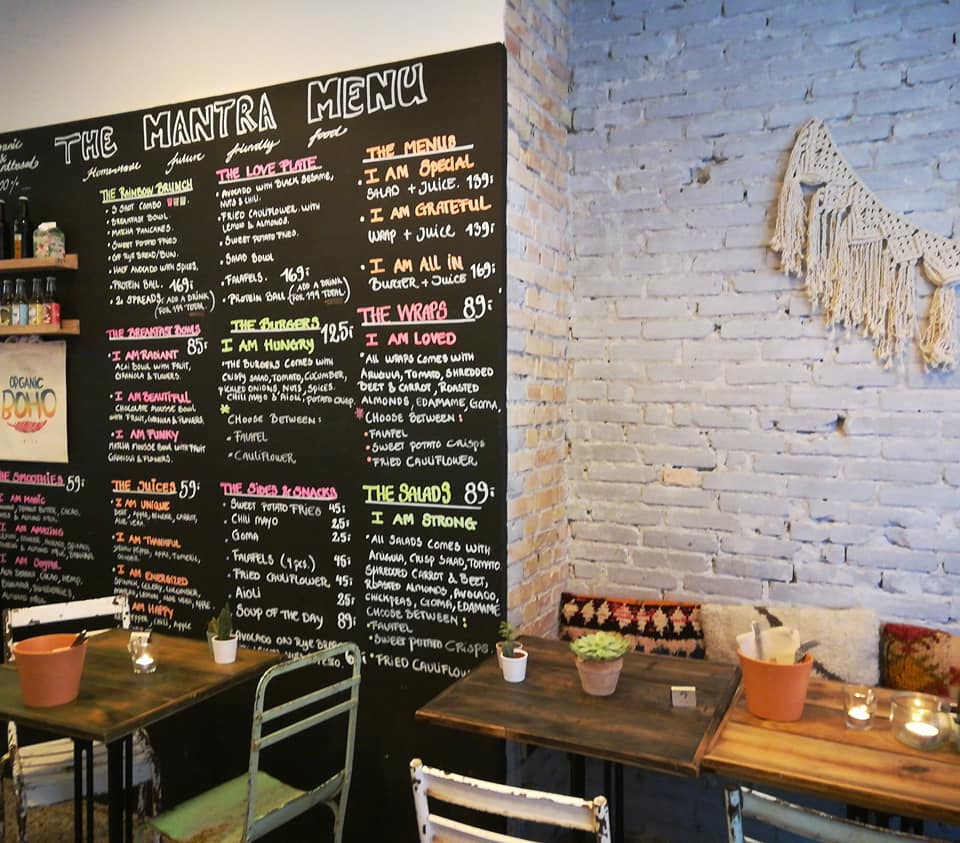 THE MANTRA MENU
Homemade future friendly food
THE RAINBOW BRUNCH
• 3 SHOT COMBO
• BREAKFAST BOWL.
• MATCHA PANCAKES.
• SWEET POTATO FRIES
OF RYE BREAD/BUN.
• HALF AVOCADO WITH SPICES.
• PROTEIN BALL. 169;-
• 2 SPREADS (ADD A DRINK
FOR 199 TOTAL)
THE BREAKFAST BOWLS
85;-
• I AM RADIANT
ACAI BOWL WITH FRUIT,
GRANOLA & FLOWERS.
• I AM BEAUTIFUL
CHOCOLATE MOUSSE BOWL
WITH FRUIT, GRANOLA & FLOWERS.
• I AM FUNKY
MATCHA MOUSSE BOWL WITH FRUIT
GRANOLA & FLOWERS.
ORGANIC
BOHO
THE SMOOTHIES 59;-
I AM MAGIC
I AM AMAZING
I AM JOYFUL
THE JUICES 59;-
• I AM UNIQUE
BEET, APPLE, GINGER, CARROT,
• I AM THANKFUL
• I AM ENERGIZED
SPINACH, CELERY, CUCUMBER,
AM HAPPY
THE LOVE PLATE
• AVOCADO WITH BLACK SESAME,
NUTS & CHILI.
• FRIED CAULIFLOWER WITH
LEMON & ALMONDS.
• SWEET POTATO FRIES.
• SALAD BOWL
• FALAFELS. 169;-
• PROTEIN BALL (ADD A DRINK
FOR 199 TOTAL)
THE BURGERS
I AM HUNGRY 125;-
*THE BURGERS COMES WITH
CRISPY SALAD, TOMATO, CUCUMBER,
PICKLED ONIONS, NUTS, SPICES.
CHILI MAYO & AIOLI, POTATO CRISP.
*
CHOOSE BETWEEN:
- FALAFEL
- CAULIFLOWER
THE SIDES & SNACKS
• SWEET POTATO FRIES 45;-
• CHILI MAYO 25;-
• GOMA 25;-
• FALAFELS (4 pcs.) 45;-
• FRIED CAULIFLOWER 45;-
• AIOLI 25;-
SOUP OF THE DAY 89;-
AVOCADO ON RYE BREAD
THE MENUS
• I AM SPECIAL
SALAD + JUICE. 139;-
• I AM GRATEFUL
WRAP + JUICE 139;-
• I AM ALL IN
BURGER + JUICE 169;-
THE WRAPS 89;-
I AM LOVED
*ALL WRAPS COMES WITH
ARUGULA, TOMATO, SHREDDED
BEET & CARROT, ROASTED
ALMONDS, EDAMAME, GOMA,
* CHOOSE BETWEEN:
• FALAFEL
• SWEET POTATO CRISPS
• FRIED CAULIFLOWER
THE SALADS 89;-
I AM STRONG
*ALL SALADS COMES WITH
ARUGULA, CRISP SALAD, TOMATO
SHREDDED CARROT & BEET,
ROASTED ALMONDS, AVOCADO,
CHICKPEAS, GOMA, EDAMAME
CHOOSE BETWEEN:
- FALAFEL
• SWEET POTATO CRISPS.
• FRIED CAULIFLOW